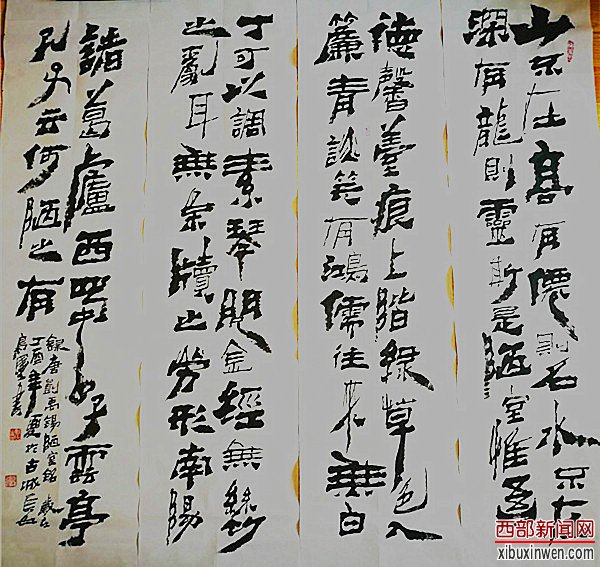 山不在高有僊則名水不在
深有龍則靈斯是陋室惟吾
德馨薹痕上階綠草色入
簾青談笑有鴻儒往來無白
丁可以調素琴閱金經無絲竹
之亂耳無案牘之勞形南陽
諸葛廬西蜀子雲亭
孔子云何陋之有
錄唐劉禹錫陋室銘歲在
丁酉年夏於古城長安
書
西部新闻网
xibuxinwen.com